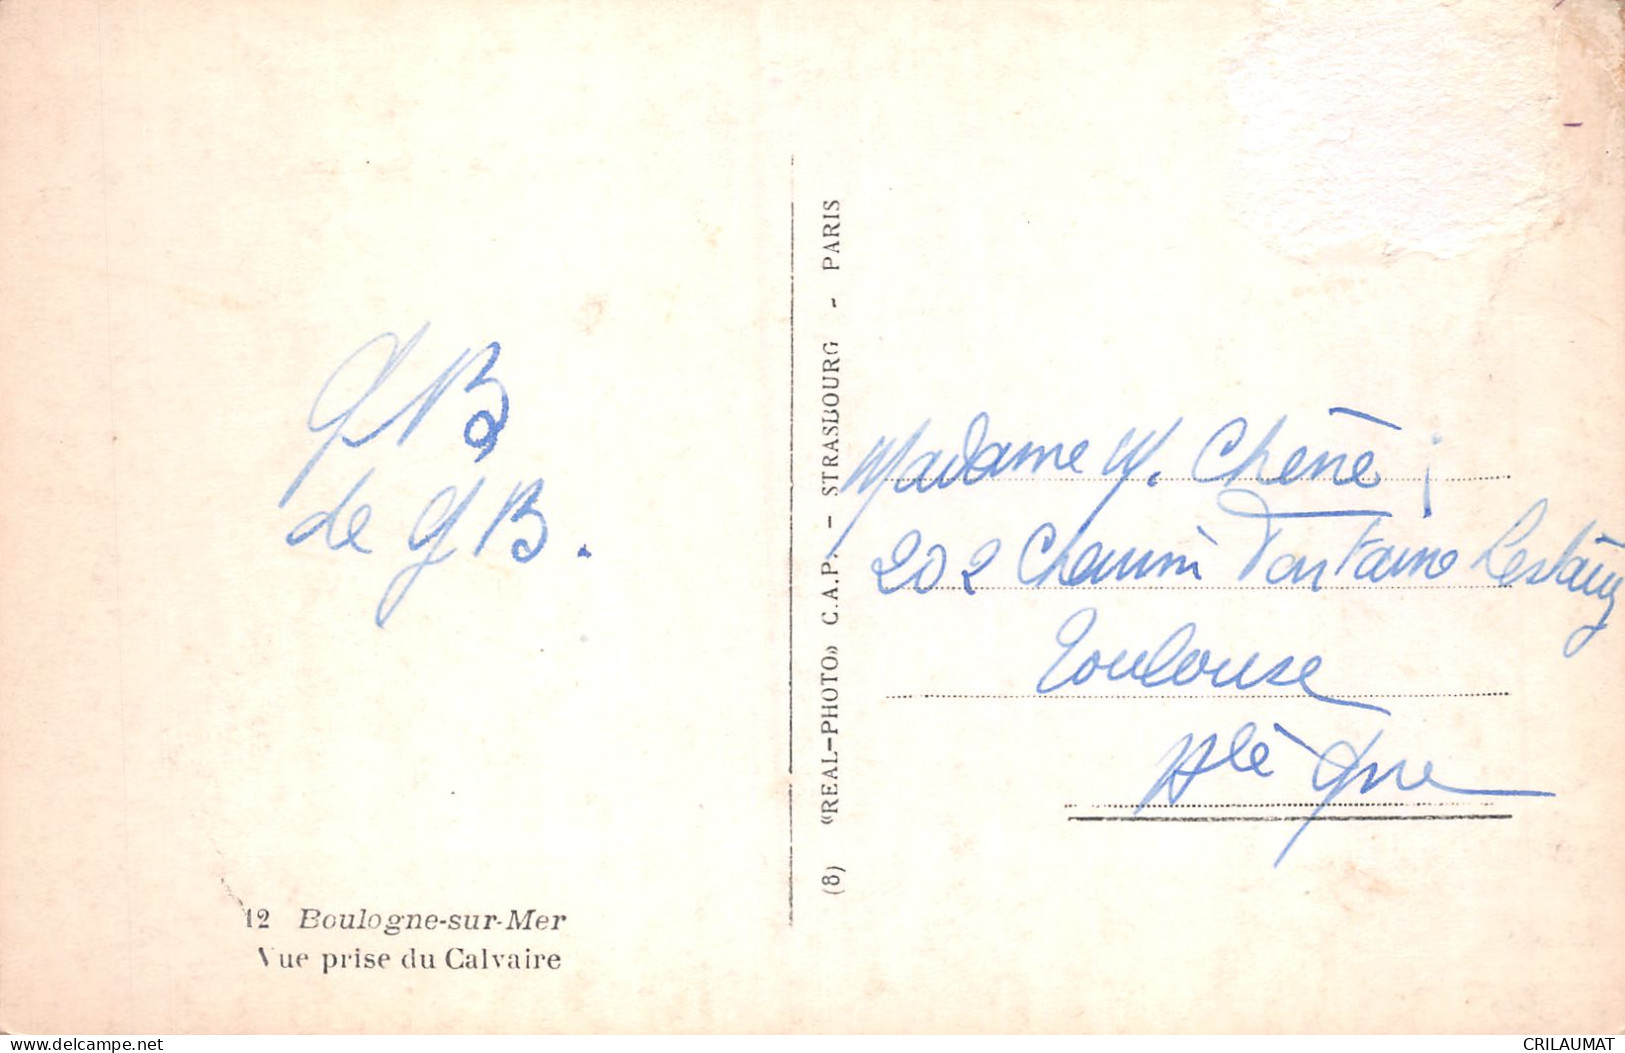 GB
de GB.
12 Boulogne-sur-Mer
Vue prise du Calvaire
(8) «REAL-PHOTO» C.A.P. - STRASBOURG - PARIS
Madame M. Chêne
202 Chemin Fontaine Lestang
Toulouse
Hte Gne
delcampe.net
CRILAUMAT